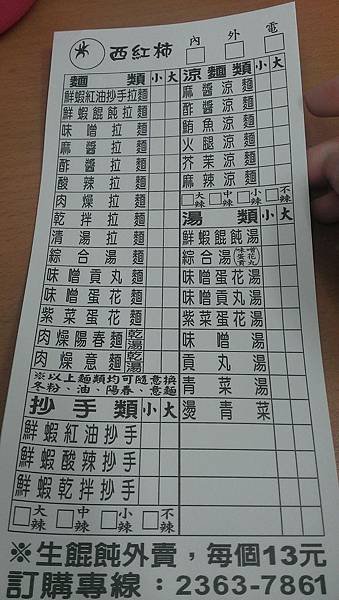 西紅柿 內 外 電
麵類 小 大
鮮蝦紅油抄手拉麵
鮮蝦餛飩拉麵
味噌拉麵
麻醬拉麵
酢醬拉麵
酸辣拉麵
肉燥拉麵
乾拌拉麵
清湯拉麵
綜合湯麵
味噌貢丸麵
味噌蛋花麵
紫菜蛋花麵
肉燥陽春麵 乾湯
肉燥意麵 乾湯
※以上麵類均可隨意換
冬粉、油、陽春、意麵
抄手類 小 大
鮮蝦紅油抄手
鮮蝦酸辣抄手
鮮蝦乾拌抄手
大辣 中辣 小辣 不辣
涼麵類 小 大
麻醬涼麵
酢醬涼麵
鮪魚涼麵
火腿涼麵
芥茉涼麵
麻辣涼麵
大辣 中辣 小辣 不辣
湯類 小 大
鮮蝦餛飩湯
綜合湯
味噌貢丸湯
味噌蛋花湯
紫菜蛋花湯
味噌湯
貢丸湯
青菜湯
燙青菜
※生餛飩外賣，每個13元
訂購專線：2363-7861